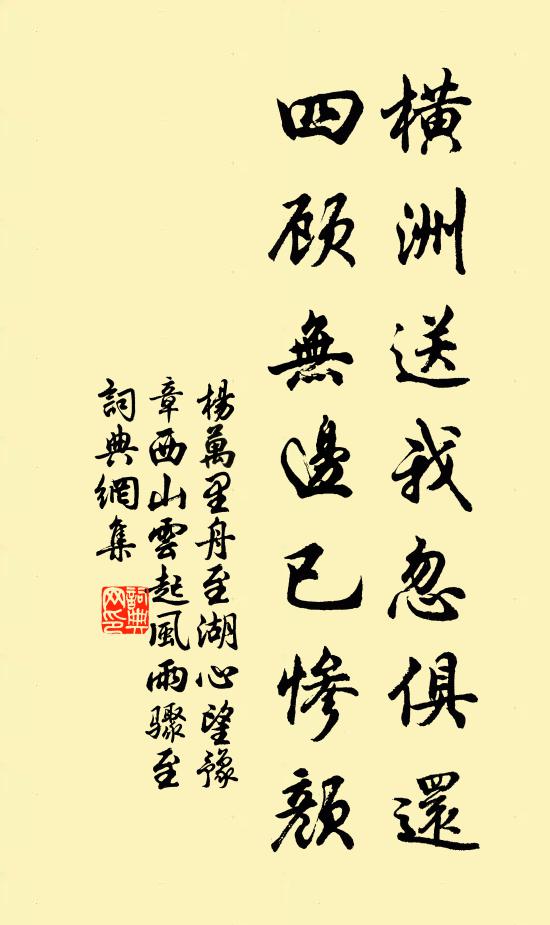 橫洲送我忽俱還
四顧無邊已慘顏
楊萬里舟至湖心望豫
章西山雲起風雨驟至
詞典網集
詞典
网印